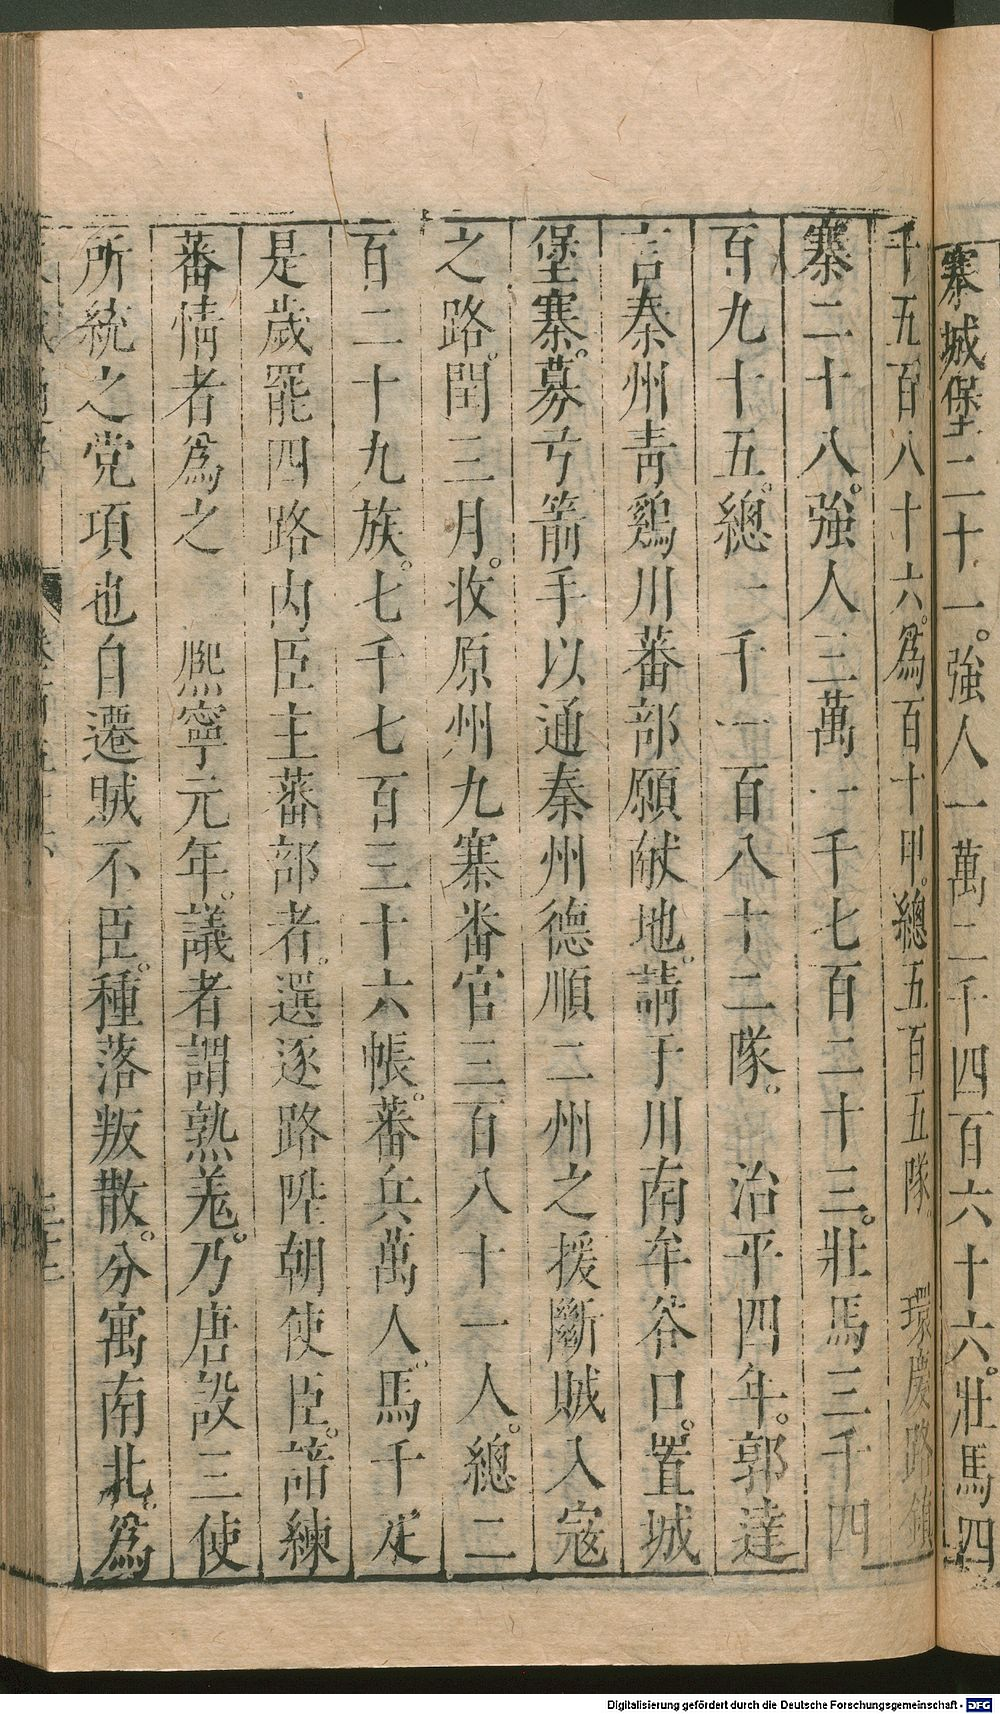 寨城堡二十一。強人一萬二千四百六十六。壯馬四
千五百八十六。爲百十甲。總五百五隊。　環慶路鎮
寨二十八。強人三萬一千七百二十三。壯馬三千四
百九十五。總一千一百八十二隊。　治平四年。郭逵
言秦州靑鷄川蕃部願献地。請于川南牟谷口。置城
堡寨。募弓箭手以通秦州德順二州之援斷賊入寇
之路。閏三月。收原州九寨蕃官三百八十一人。總二
百二十九族。七千七百三十六帳。蕃兵萬人馬千疋
是歲罷四路內臣主蕃部者。選逐路陞朝使臣。諳練
蕃情者爲之　熈寧元年。議者謂熟羗。乃唐設三使
所統之党項也自遷賊不臣。種落叛散。分寓南北。爲
Digitalisierung gefördert durch die Deutsche Forschungsgemeinschaft - DFG